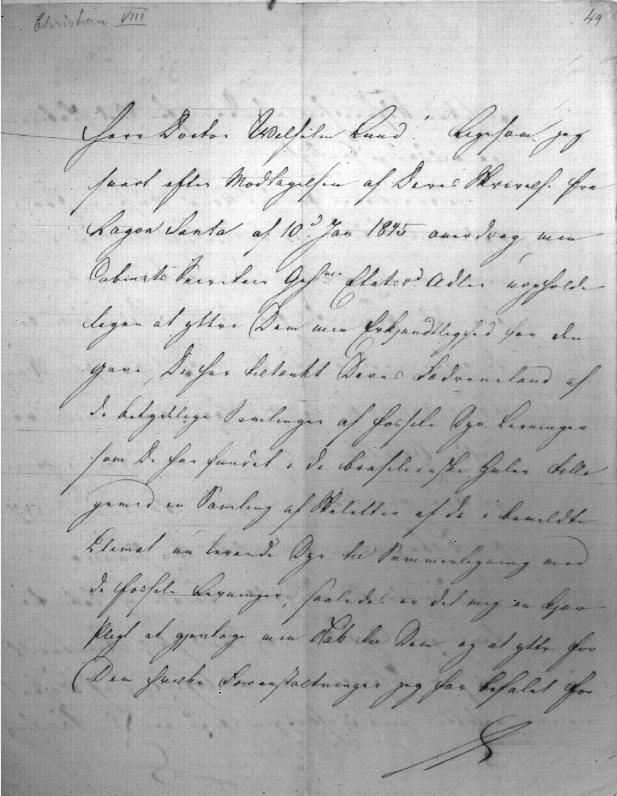 Christian VIII
49
Herr Doctor Wilhelm Lund! Ligesom jeg
snart efter Modtagelsen af Deres Skrivelse fra
Lagoa Santa af 10d Jan 1845 overdrog min
Cabinets Secretair Geh Etatsrd Adler uopholde
ligen at yttre Dem min Erkjendtlighed for den
Gave, De har tiltænkt Deres Fædreneland af
de betydelige Samlinger af fossile Dyr Levninger
som De har fundet i de brasilianske Huler tilli
gemed en Samling af Skeletter af de i bemeldte
Climat nu levende Dyr til Sammenligning med
de fossile Levninger, saaledes er det mig en kjær
Pligt at gjentage min Tak til Dem og at yttre for
Dem hvilke Foranstaltninger jeg har befalet for